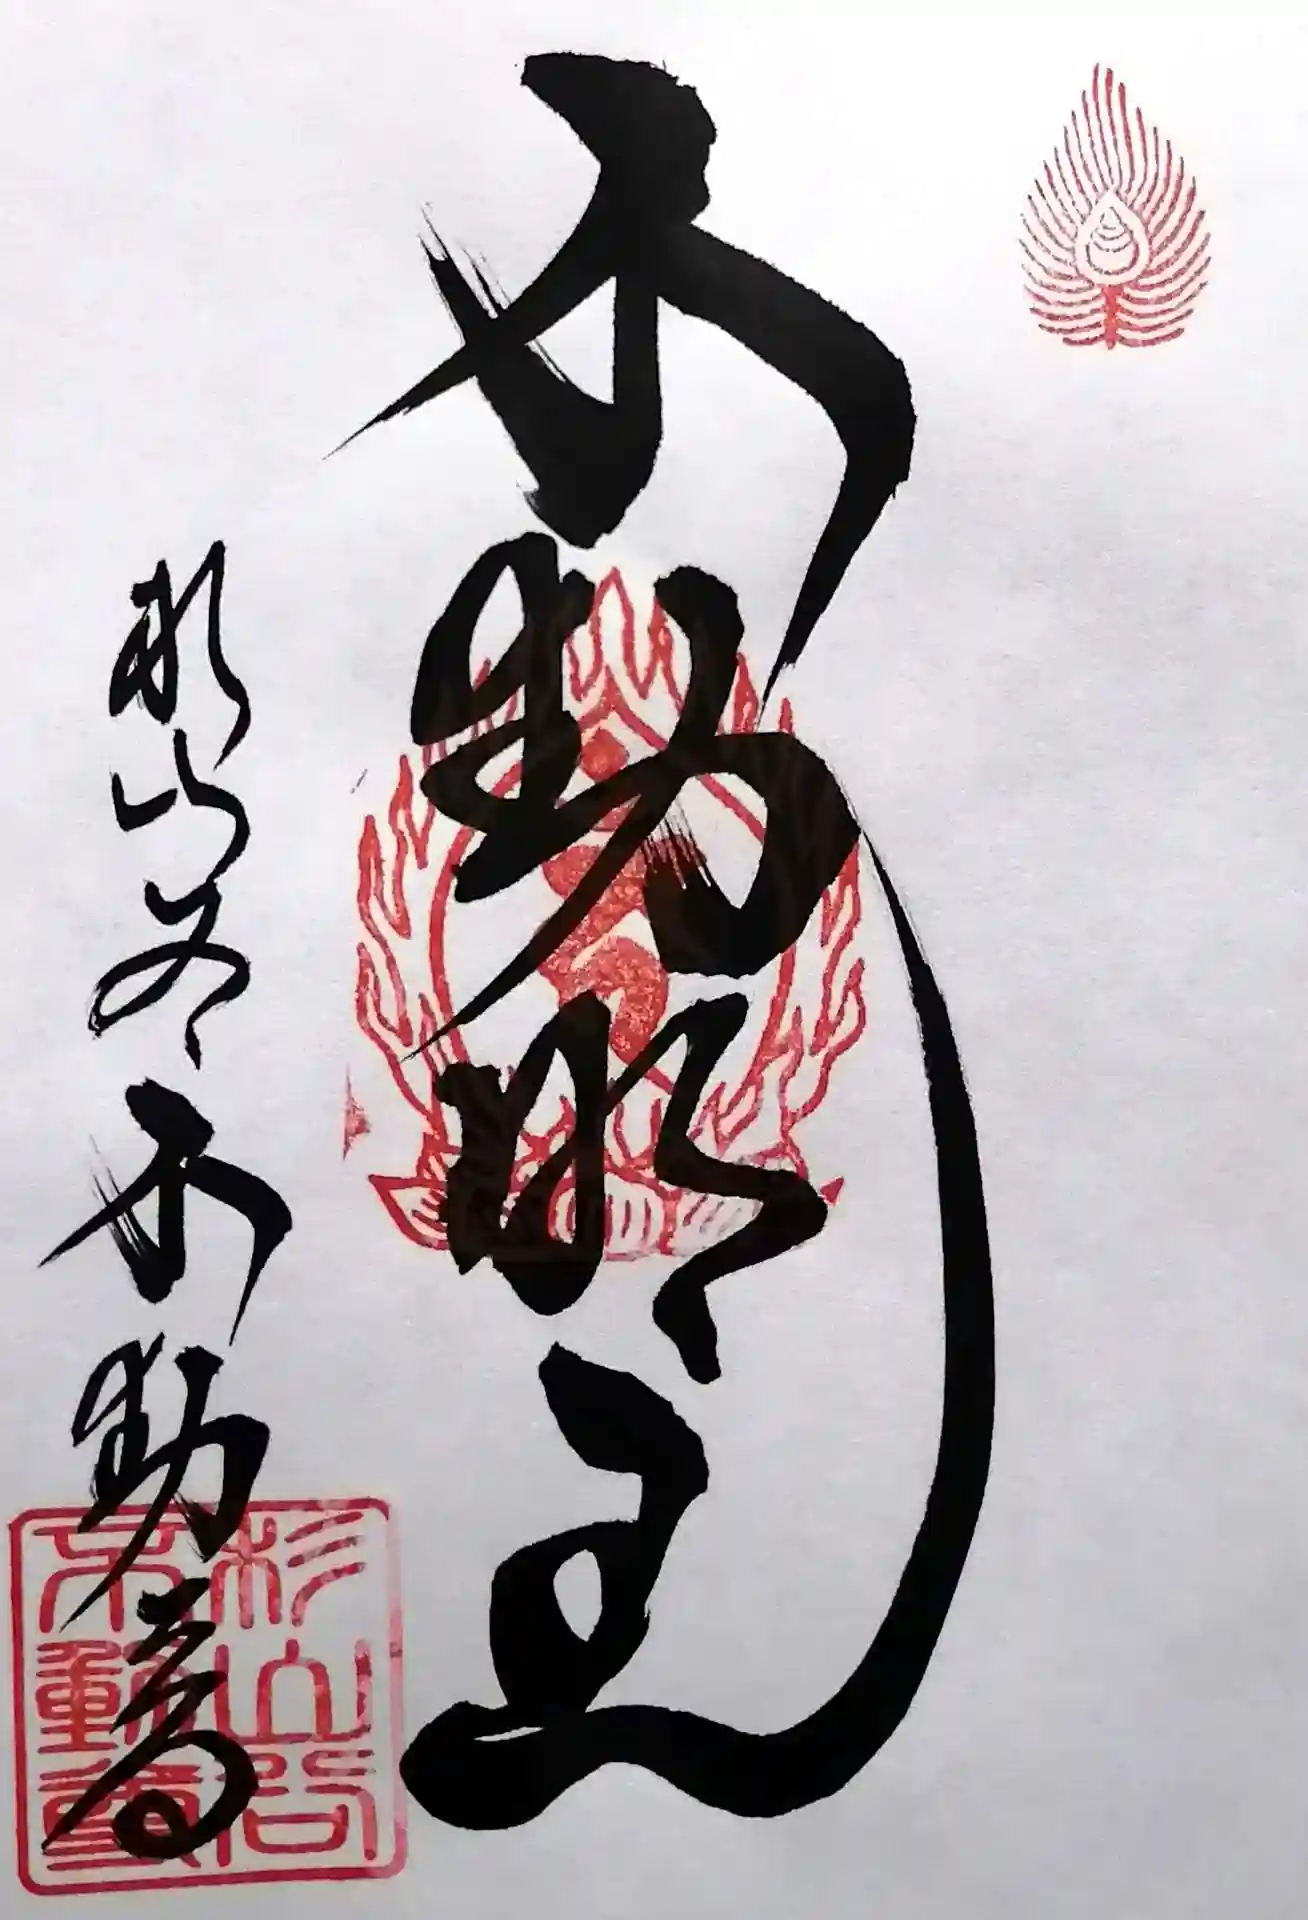 不動明王
杉山谷不動尊
杉山谷
不動尊